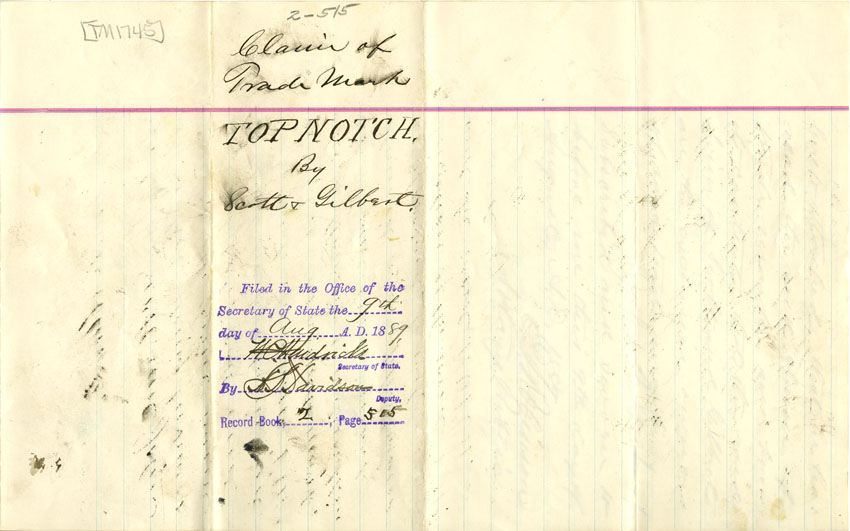 2-515
[TM1745]
Claim of
Trade Mark
TOP NOTCH.
By
Scott & Gilbert.
Filed in the Office of the
Secretary of State the 9th
day of Aug A. D. 1889
W C Hendricks
Secretary of State.
By Davidson
Deputy.
Record Book, 2, Page 515